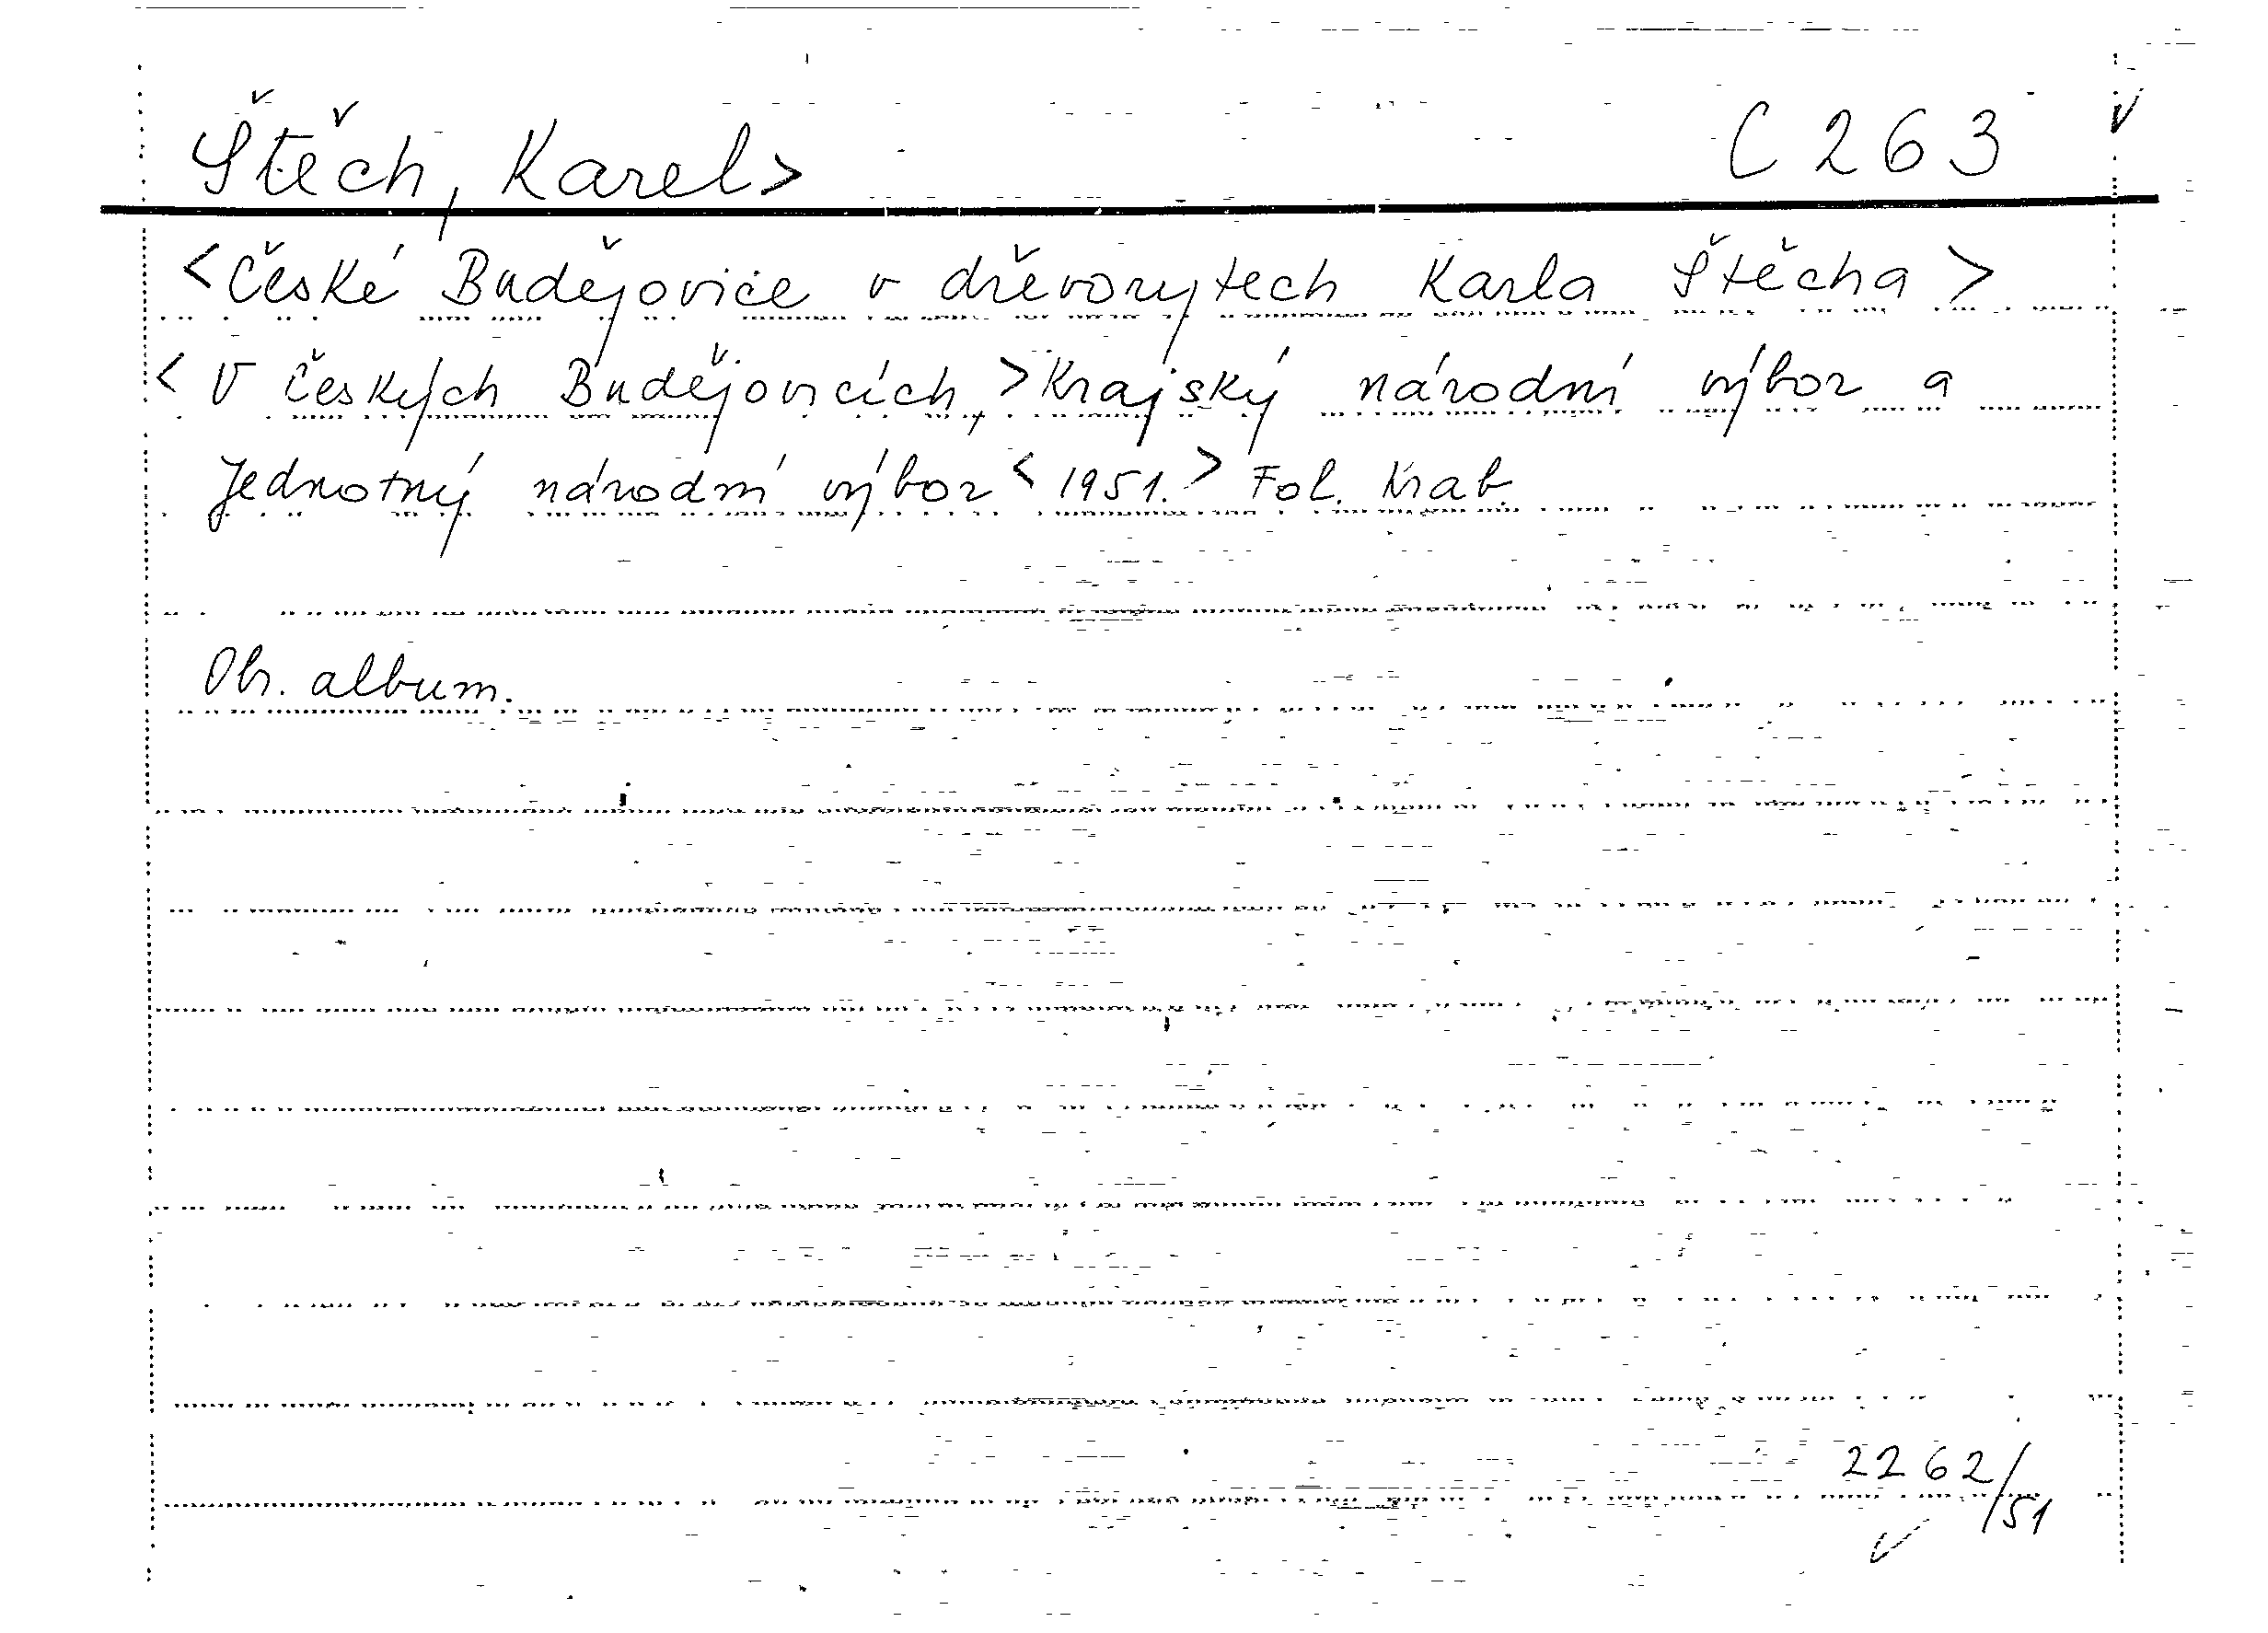 Štěch, Karel> C 263
<České Budějovice v dřevorytech Karla Štěcha>
<V Českých Budějovicích,> Krajský národní výbor a
Jednotný národní výbor <1951.> Fol. Krab.
Obr. album.
2262/51